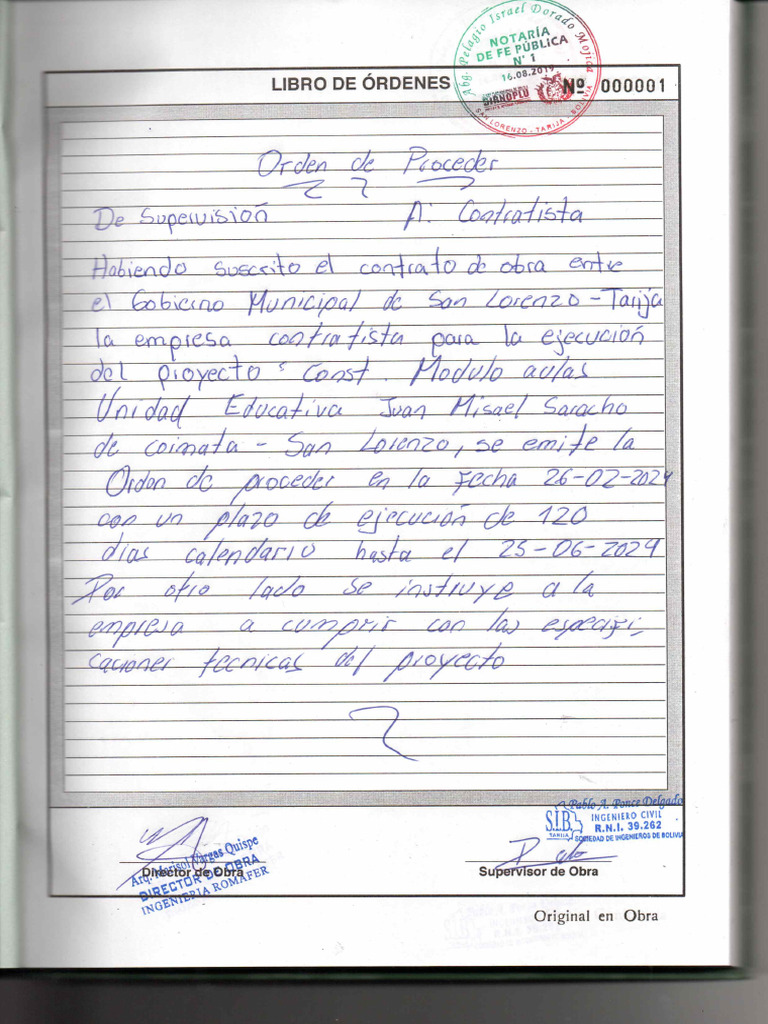 Abg. Pelagio Israel Dorado Mojica
NOTARÍA
DE FE PÚBLICA
N° 1
16.08.2019
DIRNOPLU
SAN LORENZO - TARIJA - BOLIVIA
LIBRO DE ÓRDENES Nº 000001
Orden de Proceder
De Supervisión A: Contratista
Habiendo suscrito el contrato de obra entre
el Gobierno Municipal de San Lorenzo - Tarija
la empresa contratista para la ejecución
del proyecto "Const. Modulo aulas
Unidad Educativa Juan Misael Saracho
de coimata - San Lorenzo, se emite la
Orden de proceder en la Fecha 26-02-2024
con un plazo de ejecución de 120
dias calendario hasta el 25-06-2024
Por otro lado se instruye a la
empresa a cumprir con las especifi,
caciones tecnicas del proyecto
Pablo A. Ponce Delgado
INGENIERO CIVIL
R.N.I. 39.262
S.I.B.
TARIJA
SOCIEDAD DE INGENIEROS DE BOLIVIA
Director de Obra
Arq. Marisol Vargas Quispe
DIRECTOR DE OBRA
INGENIERIA ROMAFER
Supervisor de Obra
Original en Obra